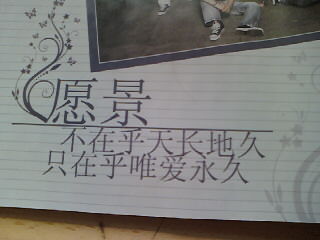 愿景
不在乎天长地久
只在乎唯爱永久